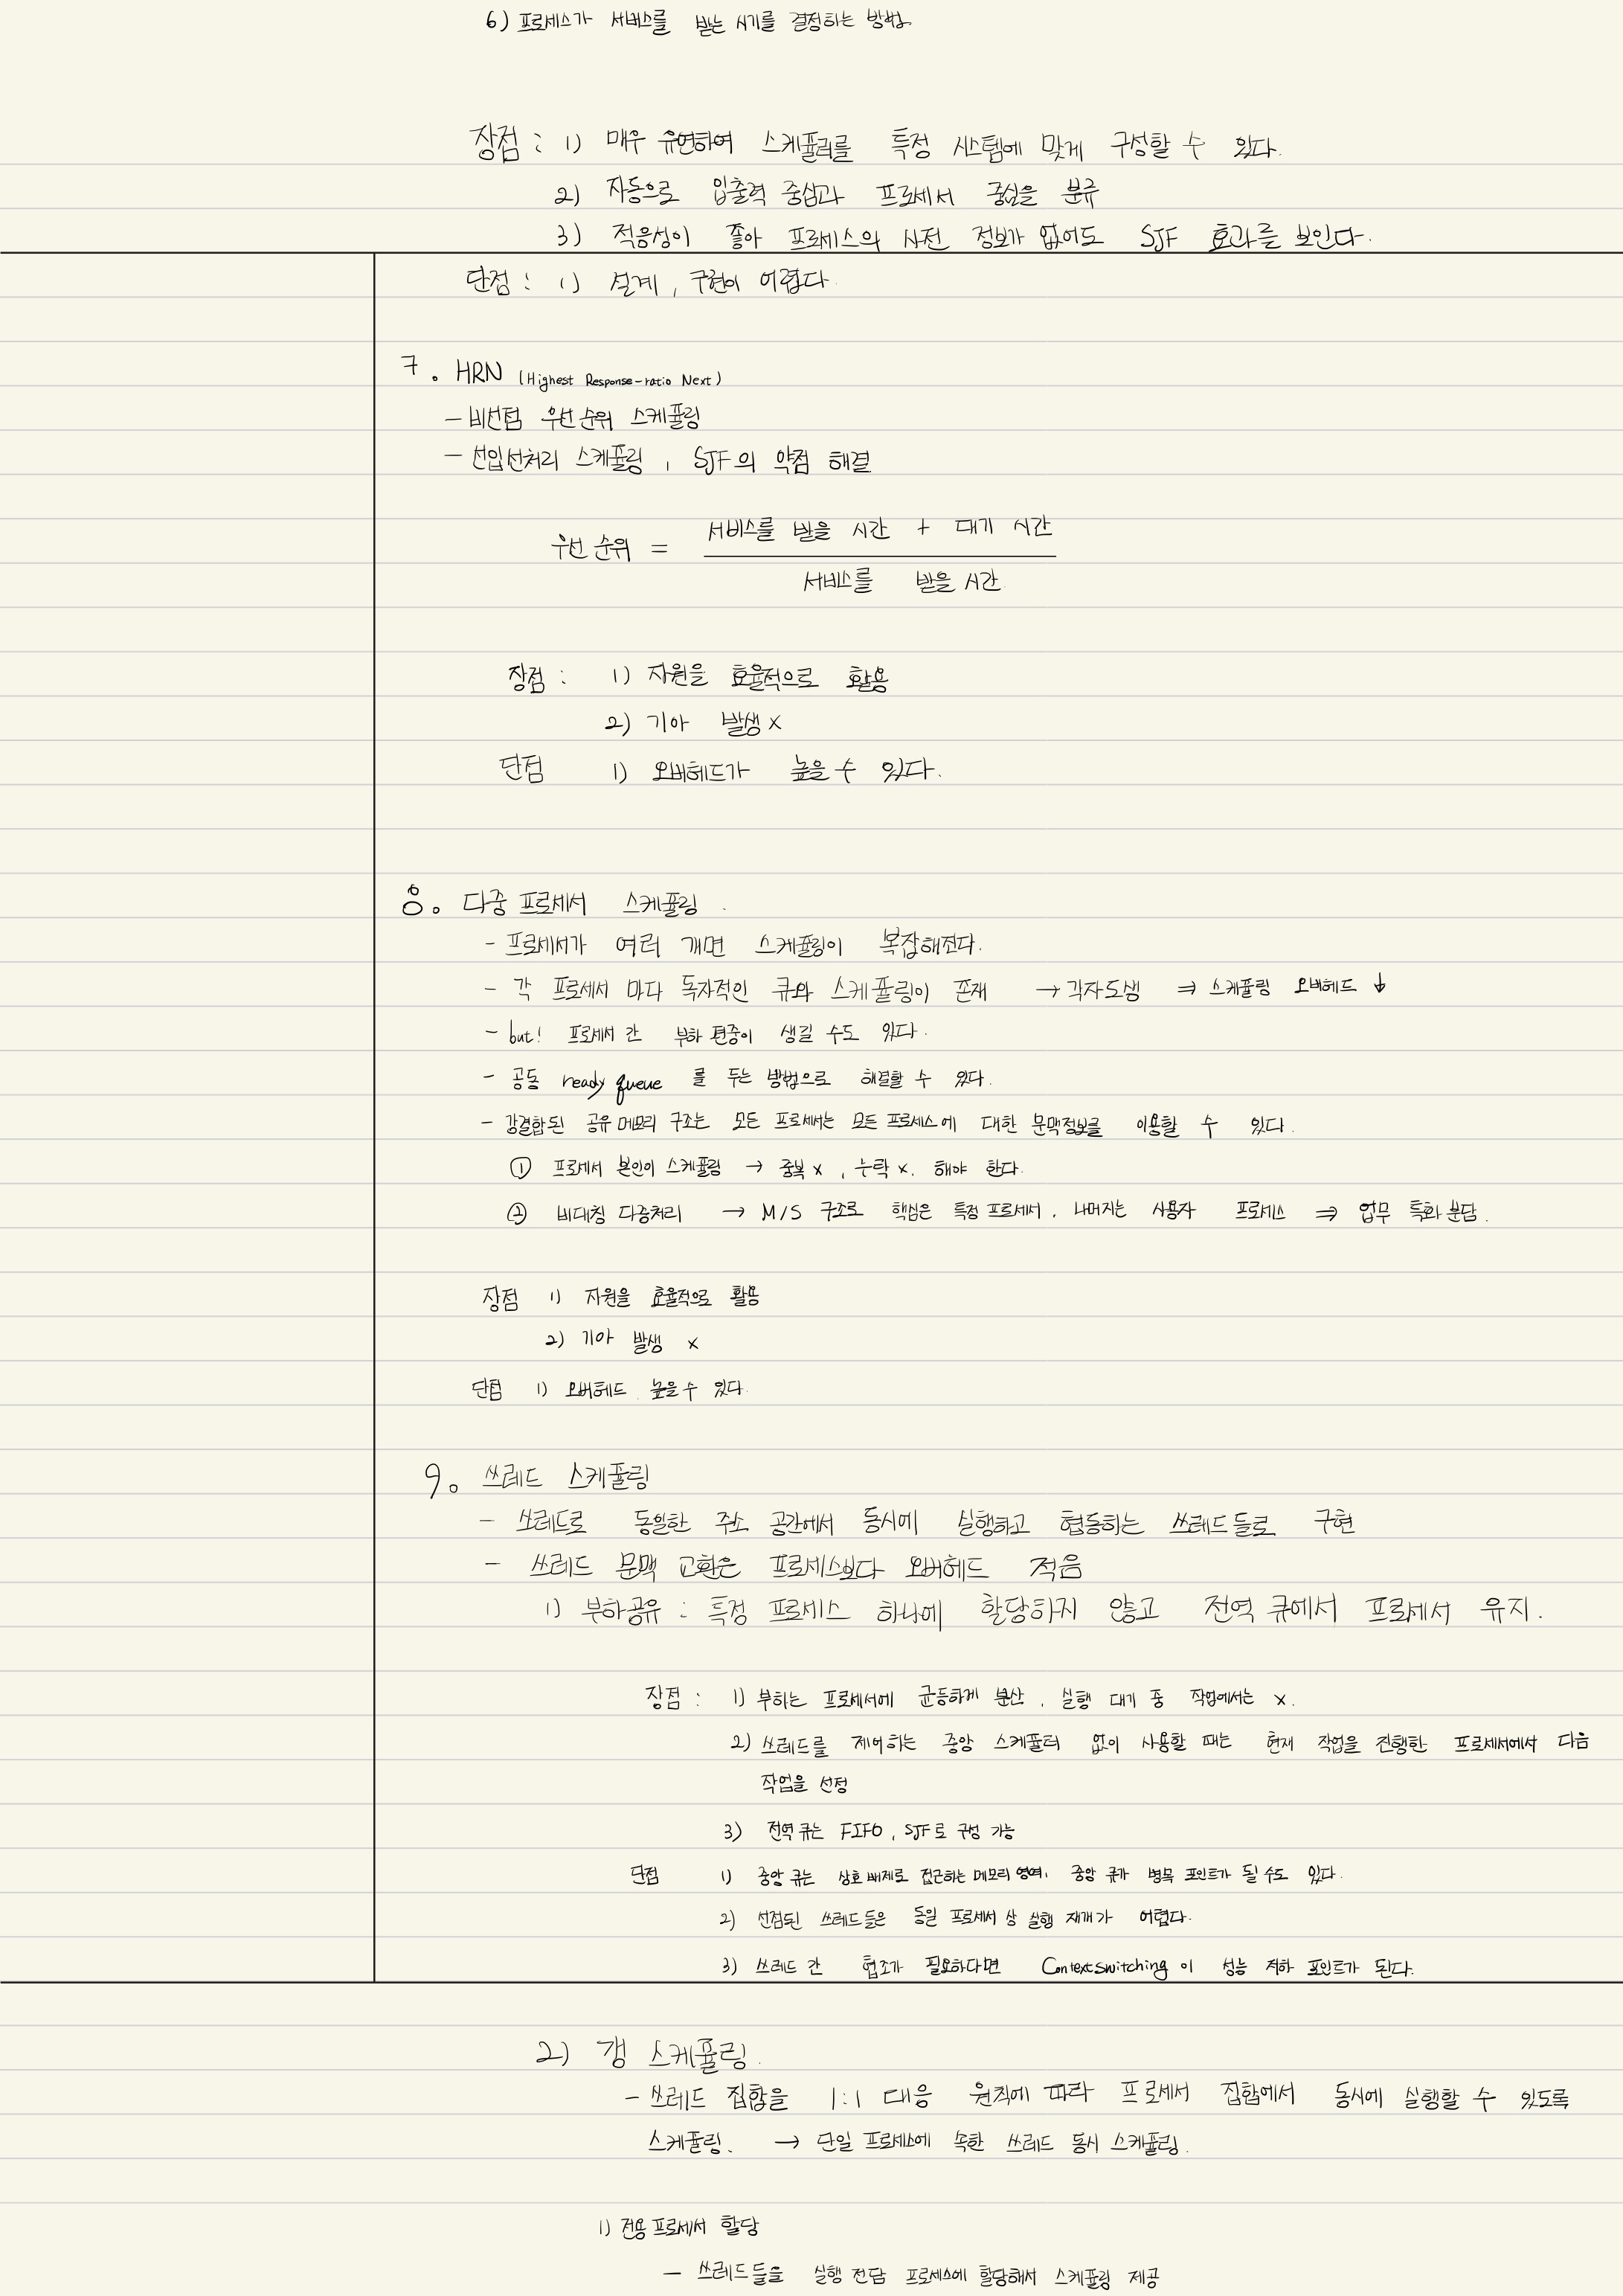 6) 프로세스가 서비스를 받는 시기를 결정하는 방법.
장점 : 1) 매우 유연하여 스케쥴러를 특정 시스템에 맞게 구성할 수 있다.
2) 자동으로 입출력 중심과 프로세서 중심을 분류
3) 적응성이 좋아 프로세스의 사전 정보가 없어도 SJF 효과를 보인다.
단점 : 1) 설계, 구현이 어렵다.
7. HRN (Highest Response-ratio Next)
- 비선점 우선순위 스케쥴링
- 선입선처리 스케쥴링, SJF의 약점 해결
서비스를 받을 시간 + 대기 시간
우선 순위 =
서비스를 받을 시간.
장점 : 1) 자원을 효율적으로 활용
2) 기아 발생 x
단점 1) 오버헤드가 높을 수 있다.
8. 다중 프로세서 스케쥴링.
- 프로세서가 여러 개면 스케쥴링이 복잡해진다.
- 각 프로세서 마다 독자적인 큐와 스케쥴링이 존재 → 각자도생 ⇒ 스케쥴링 오버헤드 ↓
- but! 프로세서 간 부하 편중이 생길 수도 있다.
- 공동 ready queue 를 두는 방법으로 해결할 수 있다.
- 강결합된 공유 메모리 구조는 모든 프로세서는 모든 프로세스에 대한 문맥정보를 이용할 수 있다.
① 프로세서 본인이 스케쥴링 → 중복 x, 누락 x. 해야 한다.
② 비대칭 다중처리 → M/S 구조로 핵심은 특정 프로세서, 나머지는 사용자 프로세스 ⇒ 업무 특화 분담.
장점 1) 자원을 효율적으로 활용
2) 기아 발생 x
단점 1) 오버헤드 높을 수 있다.
9. 쓰레드 스케쥴링
- 쓰레드로 동일한 주소 공간에서 동시에 실행하고 협동하는 쓰레드들로 구현
- 쓰레드 문맥 교환은 프로세스보다 오버헤드 적음
1) 부하공유 : 특정 프로세스 하나에 할당하지 않고 전역 큐에서 프로세서 유지.
장점 : 1) 부하는 프로세서에 균등하게 분산, 실행 대기 중 작업에서는 x.
2) 쓰레드를 제어하는 중앙 스케쥴러 없이 사용할 때는 현재 작업을 진행한 프로세서에서 다음
작업을 선정
3) 전역 큐는 FIFO, SJF로 구성 가능
단점 1) 중앙 큐는 상호 배제로 접근하는 메모리 영역, 중앙 큐가 병목 포인트가 될 수도 있다.
2) 선점된 쓰레드들은 동일 프로세서 상 실행 재개가 어렵다.
3) 쓰레드 간 협조가 필요하다면 Context switching 이 성능 저하 포인트가 된다.
2) 갱 스케쥴링.
- 쓰레드 집합을 1:1 대응 원칙에 따라 프로세서 집합에서 동시에 실행할 수 있도록
스케쥴링. → 단일 프로세스에 속한 쓰레드 동시 스케쥴링.
1) 전용 프로세서 할당
- 쓰레드들을 실행 전담 프로세스에 할당해서 스케쥴링 제공